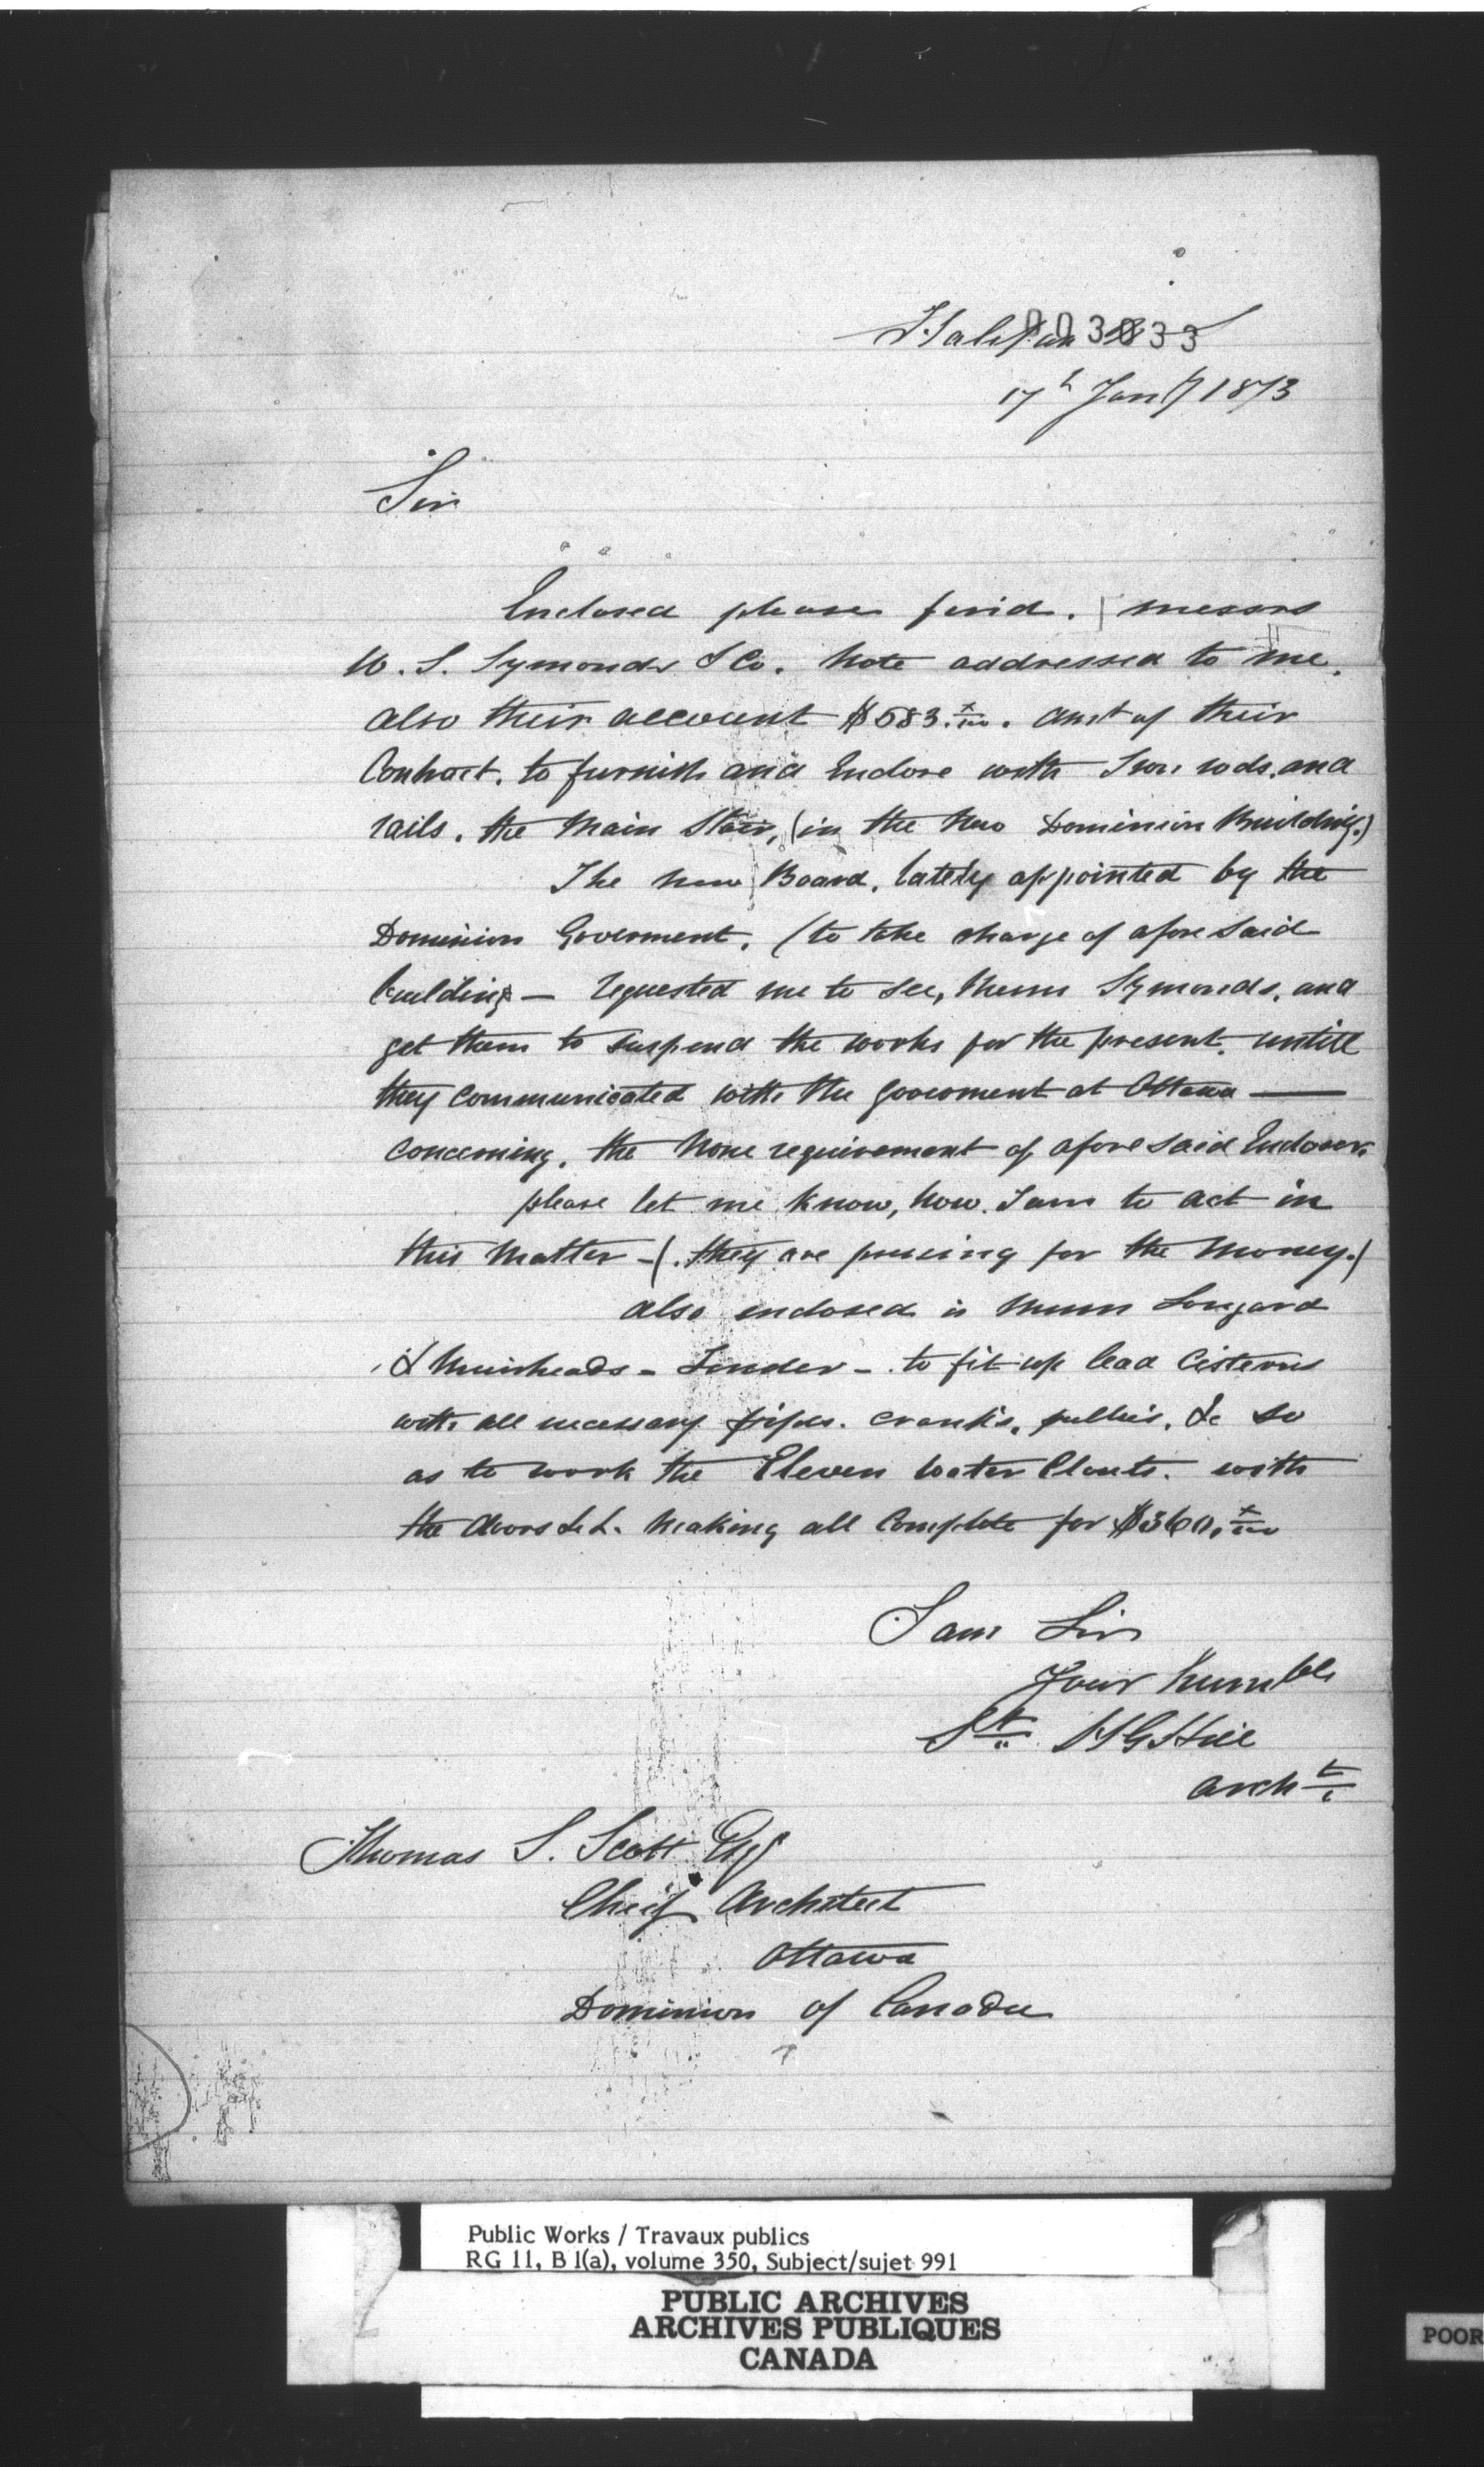 Halifax N.S.
003033
17th Jany 1873
Sir
Enclosed please find. messrs
W. S. Symonds & Co. Note addressed to me.
also their account $583.x/100. amt of their
Contract. to furnish and Enclose with Iron rods, and
rails. the Main Stair, (in the New Dominion Building.)
The new Board. lately appointed by the
Dominion Goverment. (to take charge of afore said
building — requested me to see, Messrs Symonds. and
get them to suspend the works for the present. untill
they communicated with the goverment at Ottawa —
concerning. the None requirement of afore said
please let me know, how. I am to act in
this Matter - (. they are pressing for the Money.)
also enclosed is Messrs Longard
& Muirheads - Tender - to fit up lead Cisterns
with all necessary pipes. cranks. pullies. &c so
as to work the Eleven Water Closets. with
the doors Making all Complete for $360.x/100
I am Sir
Your humble
St H G Hill
archt.
Thomas S. Scott Esq
Chief Architect
Ottawa
Dominion of Canada
Public Works / Travaux publics
RG 11, B 1(a), volume 350, Subject/sujet 991
PUBLIC ARCHIVES
ARCHIVES PUBLIQUES
CANADA
POOR